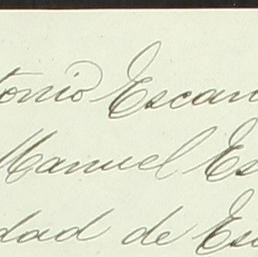 tonio Escan
Manuel Es
dad de Es